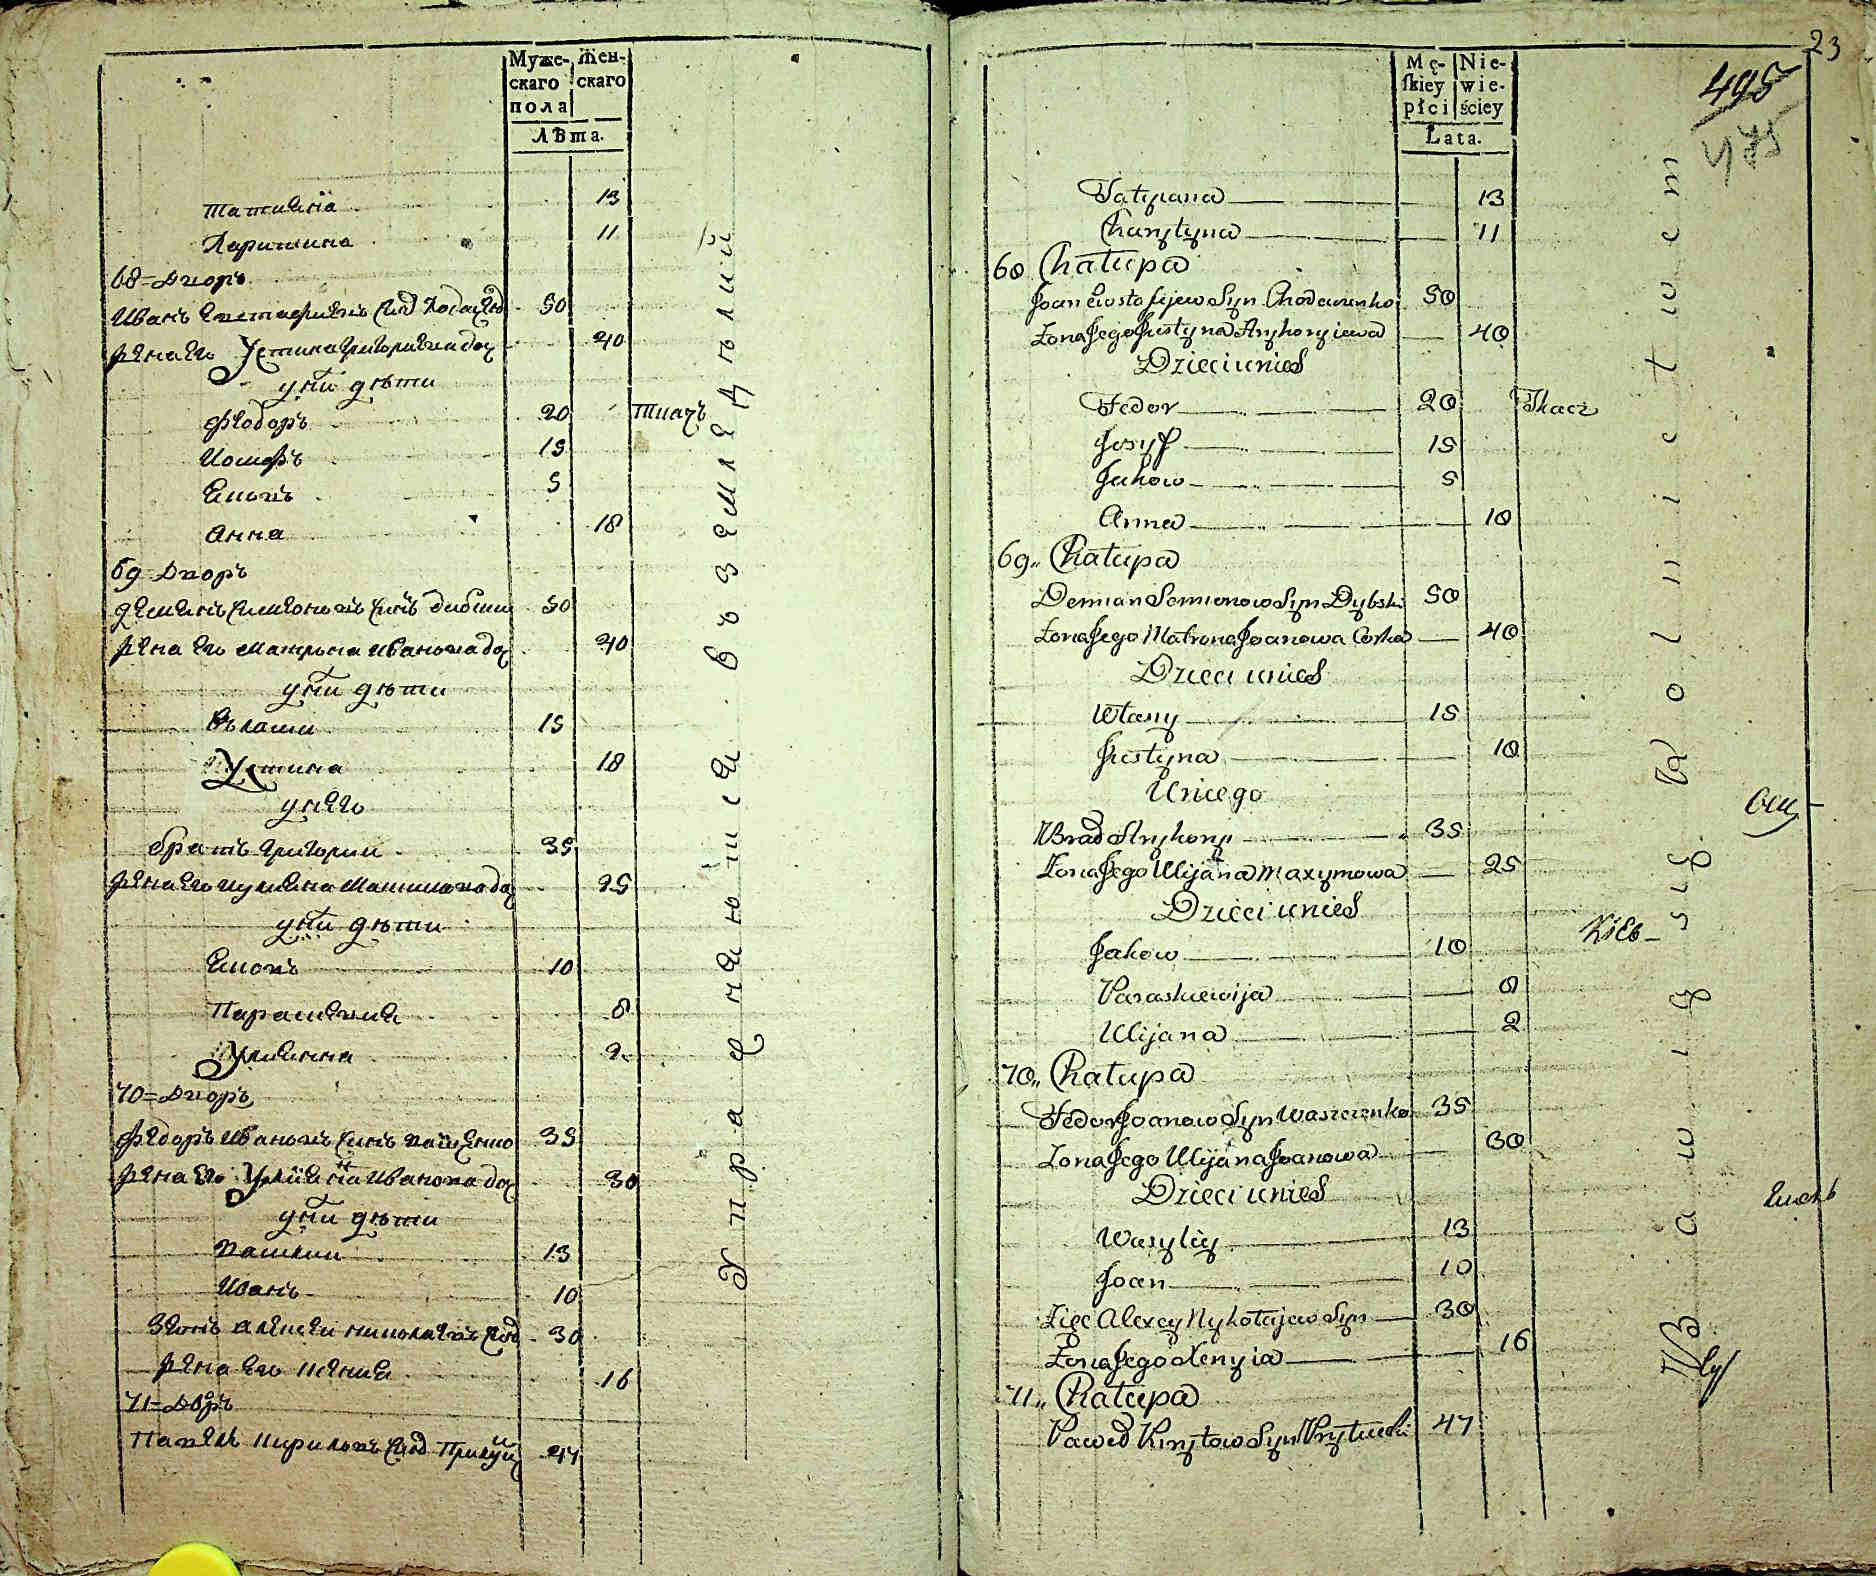 Муже- Жен-
скаго скаго
пола
ЛѢта.
Татиана 13
Харитина 11
68 = Дворъ
Иванъ Евстафиевъ синъ 50
жена его Устина Григориева доч 40
у них дѣти
Феодоръ 20 Ткачъ
Иосифъ 15
Яковъ 5
Анна 18
69 Дворъ
Демянъ Симеоновъ синъ Дибски 50
жена его Матрона Иванова доч 40
у них дѣти
Власии 15
Устина 18
у него
братъ Григории 35
жена его Иулиана Максимова доч 25
у них дѣти
Яковъ 10
Параскевия 8
Улианна 2
70 = Дворъ
Федоръ Ивановъ синъ Ващенко 35
жена его Улиана Иванова доч 30
у них дѣти
Василии 13
Иванъ 10
Зять Алексеи Николаевъ синъ 30
жена его Ксения 16
71 = Дворъ
Павелъ Кириловъ синъ Прилуцк 47
Упражняющися въ земледѣлии
23
495
475
Mę- Nie-
skiey wie-
płci ściey
Lata.
Tatyana 13
Charytyna 11
68 Chałupa
Joan Eustafijew Syn Chodourenko 50
Żona Jego Justyna Hryhoryiewa 40
Dzieci u nich
Fedor 20 Tkacz
Josyf 15
Jakow 5
Anna 18
69. Chałupa
Demian Semionow Syn Dybski 50
Żona Jego Matrona Joanowa Corka 40
Dzieci u nich
Własy 15
Justyna 18
U niego
Brad Hryhory 35
Żona Jego Ulijana Maxymowa 25
Dzieci u nich
Jakow 10
Paraskiewija 8
Ulijana 2
70. Chałupa
Fedor Joanow Syn Waszczenko 35
Żona Jego Ulijana Joanowa 30
Dzieci u nich
Wasyley 13
Joan 10
Zięc Alexey Nykołajew Syn 30
Żona Jego Xenyia 16
71. Chałupa
Paweł Kiryłow Syn Pryłucki 47
Bawią się Rolnictwem